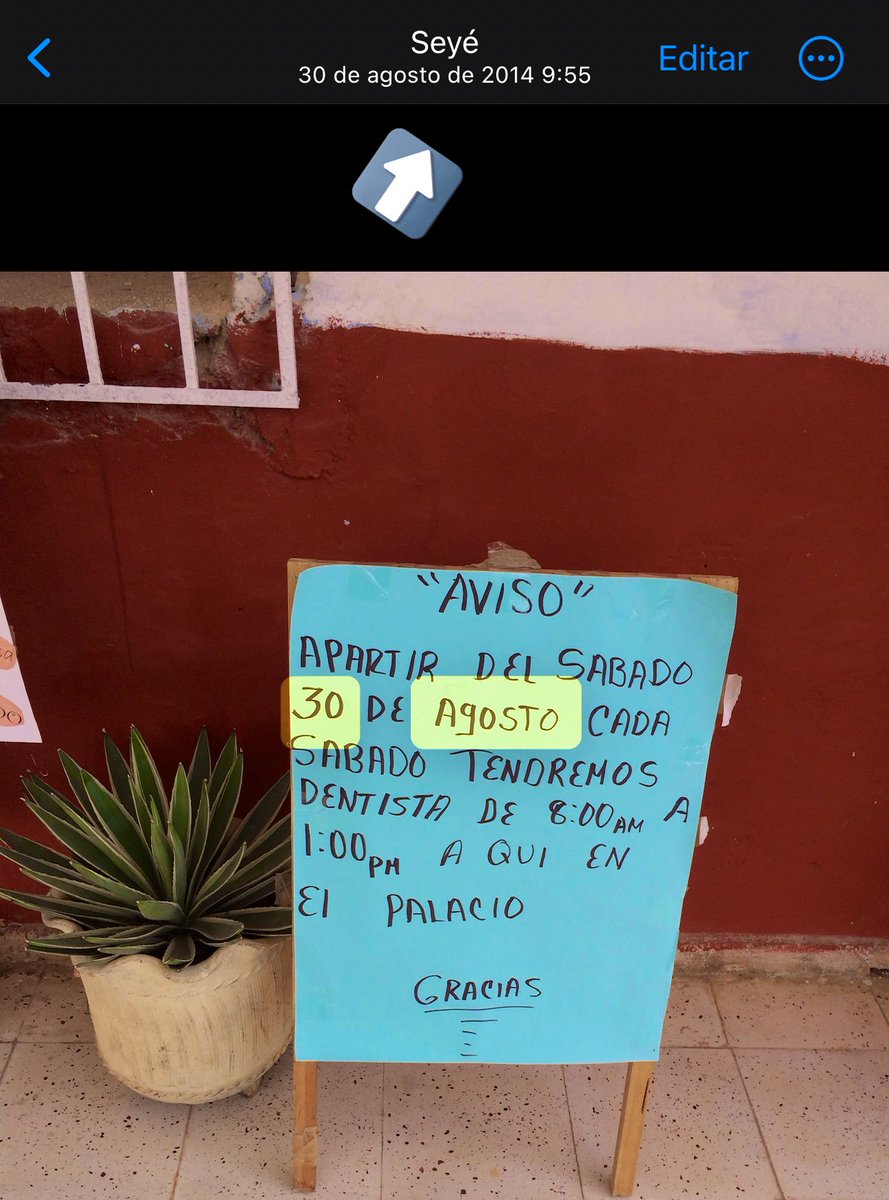 Seyé
30 de agosto de 2014 9:55
Editar
"AVISO"
APARTIR DEL SABADO
30 DE AGOSTO CADA
SABADO TENDREMOS
DENTISTA DE 8:00AM A
1:00PM A QUI EN
El PALACIO
GRACIAS